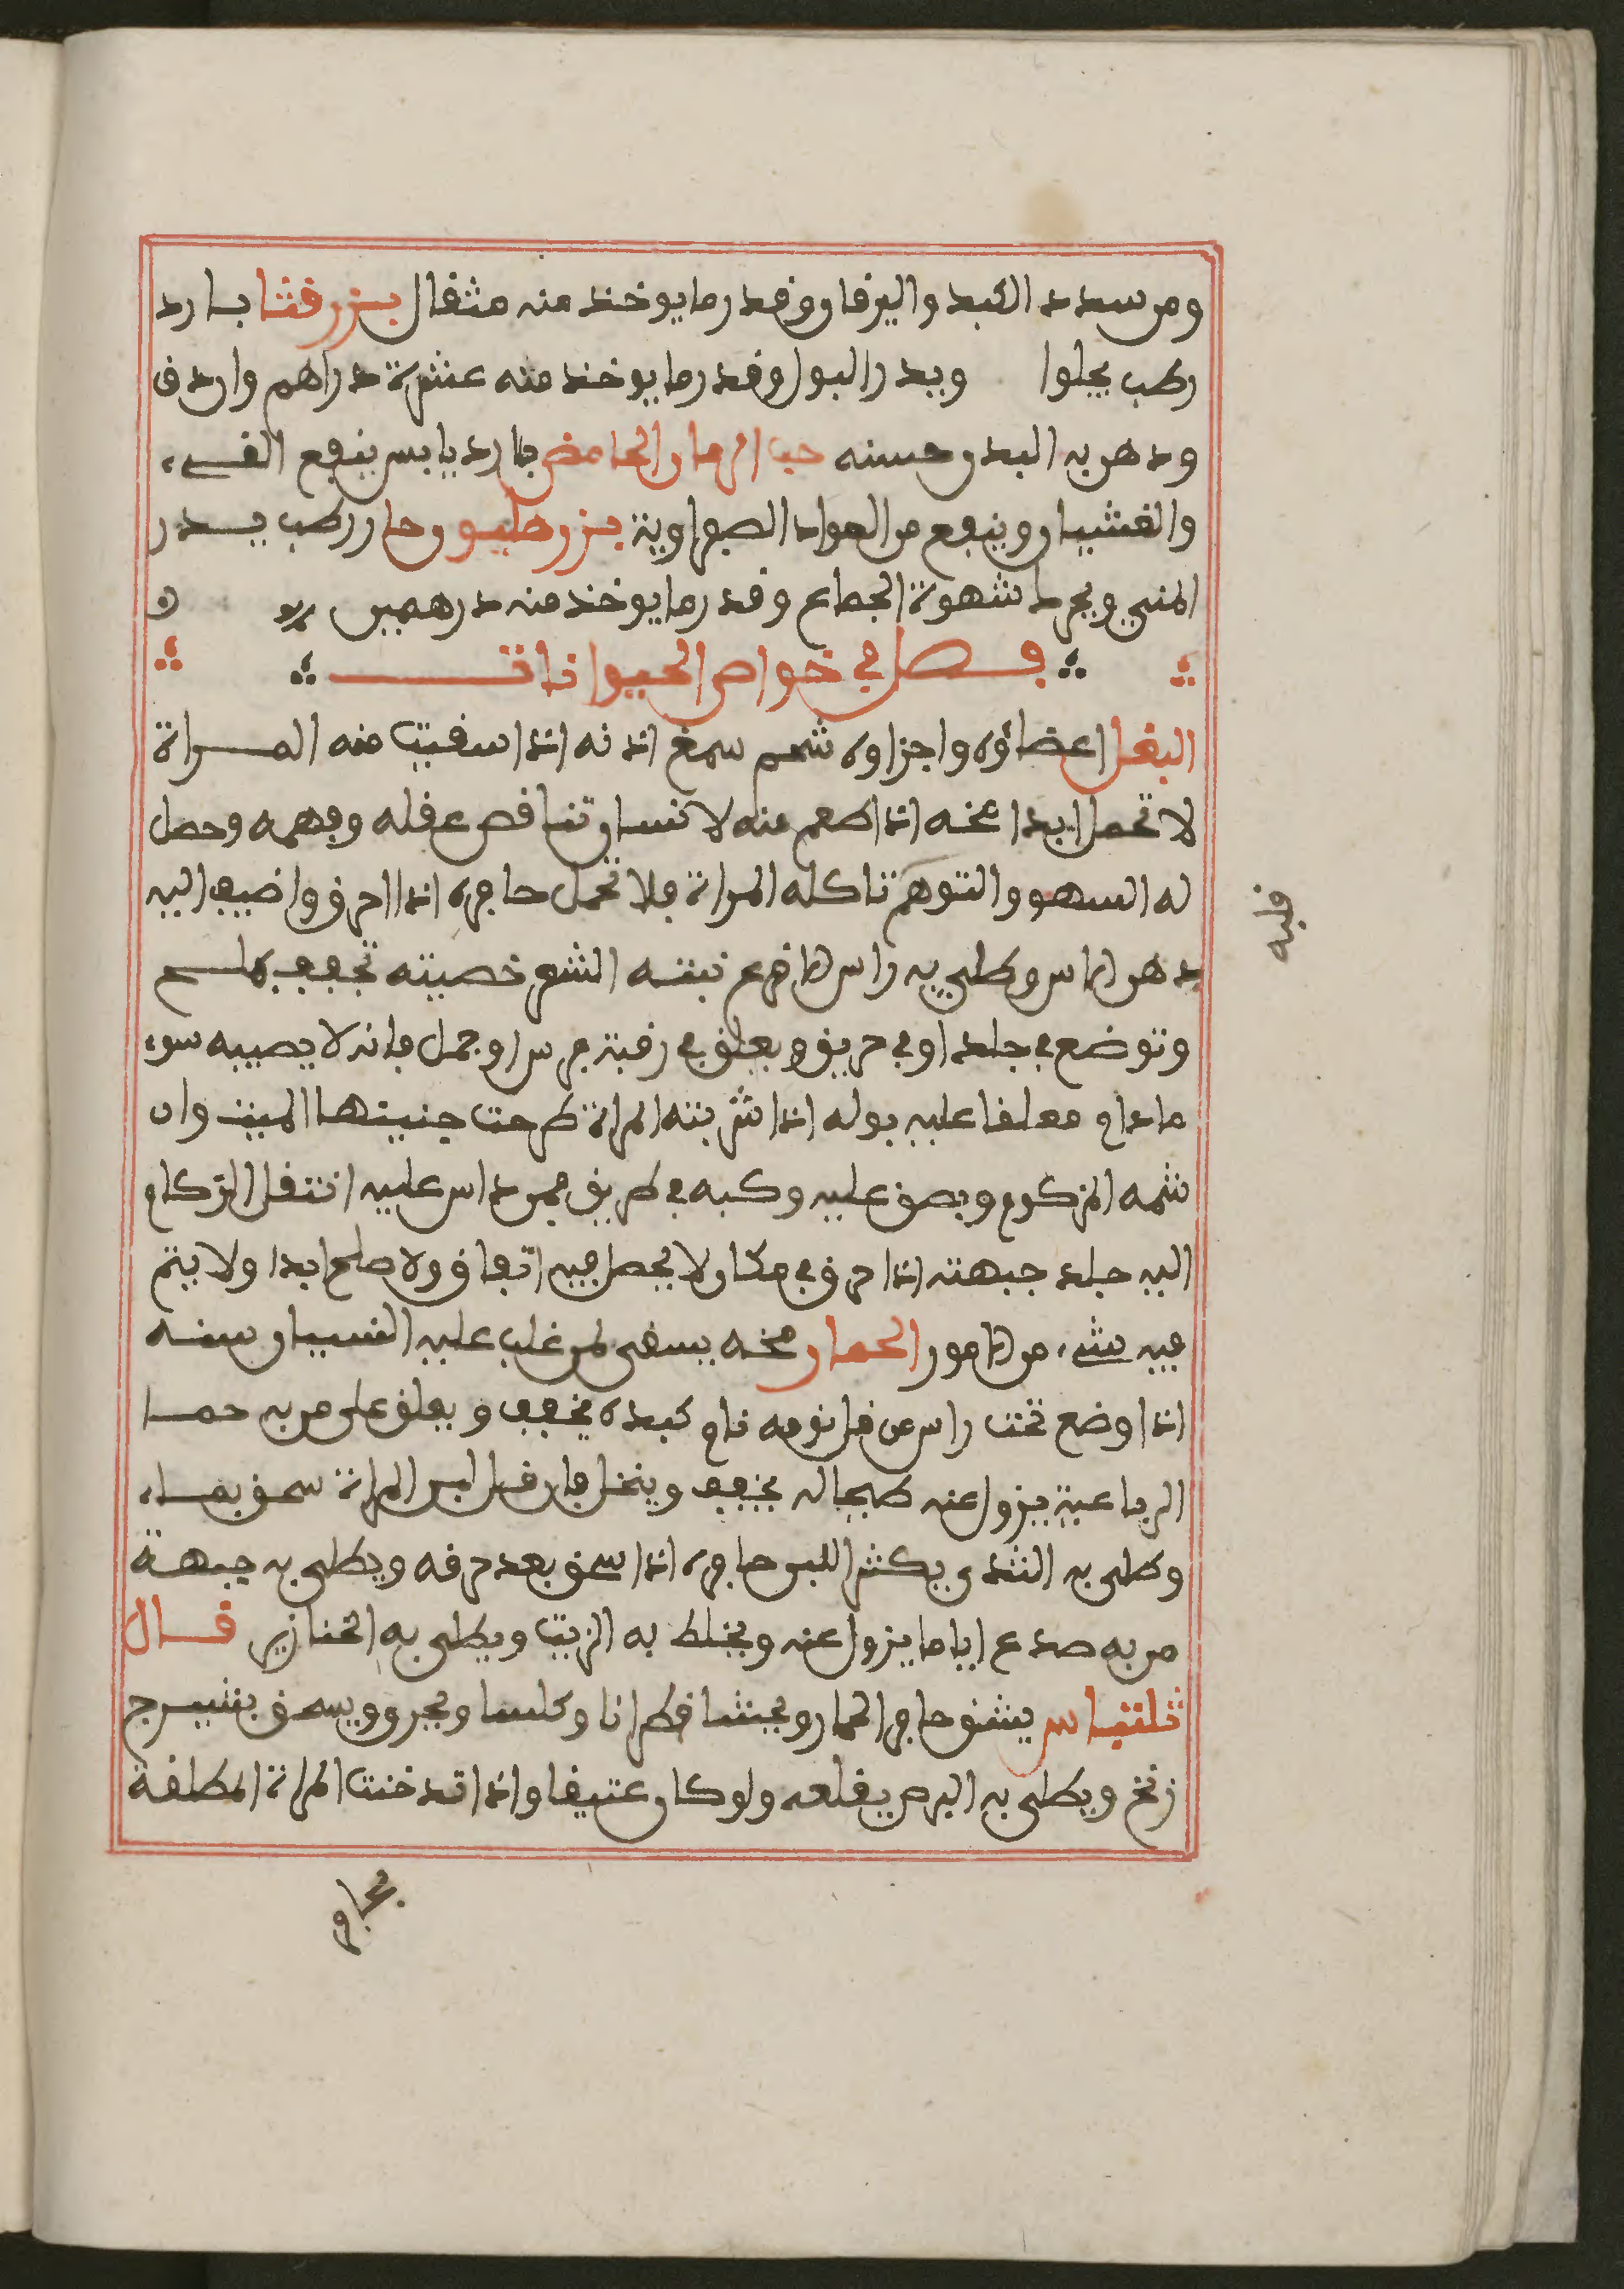 ومن سدد الكبد واليرقان وقدر ما يوخذ منه مثقال بزر قثا بارد
رطب يجلوا ويدر البول وقدر ما يوخذ منه عشرة دراهم واردف
ودهن به البدن حسنه حب الرمان الحامض بارد يابس ينفع القيء
والغثيان وينفع من المواد الصفراوية بزر هليون حار رطب يدر
المني ويحرك شهوة الجماع وقدر ما يوخذ منه درهمين
فصل في خواص الحيوانات
البغل اعضاؤه واجزاوه شحم سمغ اذنه اذا سقيت منه المراة
لا تحمل ابدا مخه اذا اطعم منه لانسان تناقص عقله وفهمه وحصل
له السهو والتوهم تاكله المراة فلا تحمل حافره اذا احرق واضيف اليه
دهن الاس وطلي به راس الاقرع نبته الشعر خصيته تجفف بملح
وتوضع في جلد او في حريق ويعلق في رقبة فرس او جمل فانه لا يصيبه سوء
ما دام معلقا عليه بوله اذا شربته المراة طرحت جنينها الميت وان
شمه المزكوم وبصق عليه وكبه في طريق فمن داس عليه انتقل الزكام
اليه جلد جبهته اذا حرق في مكان لا يحصل فيه اتفاق ولا صلح ابدا ولا يتم
فيه شيء من الامور الحمار مخه يسقى لمن غلب عليه النسيان سنه
اذا وضع تحت راس من قل نومه نام كبده يجفف ويعلق على من به حما
الرباعية يزول عنه طحاله يجفف وينخل فان قل لبن المراة سحق بماء
وطلي به الثدي يكثر اللبن حافره اذا سحق بعد حرقه ويطلى به جبهة
من به صدع اياما يزول عنه ويخلط به الزيت ويطلى به الخنازير قال
ثلثياس يشق حافر الحمار ويحشا قطرانا وكلسا ويحرق ويسحق بشيرج
زنخ ويطلى به البرص يقلعه ولو كان عتيقا واذا تدخنت المراة المطلقة
قلبه
بحافر